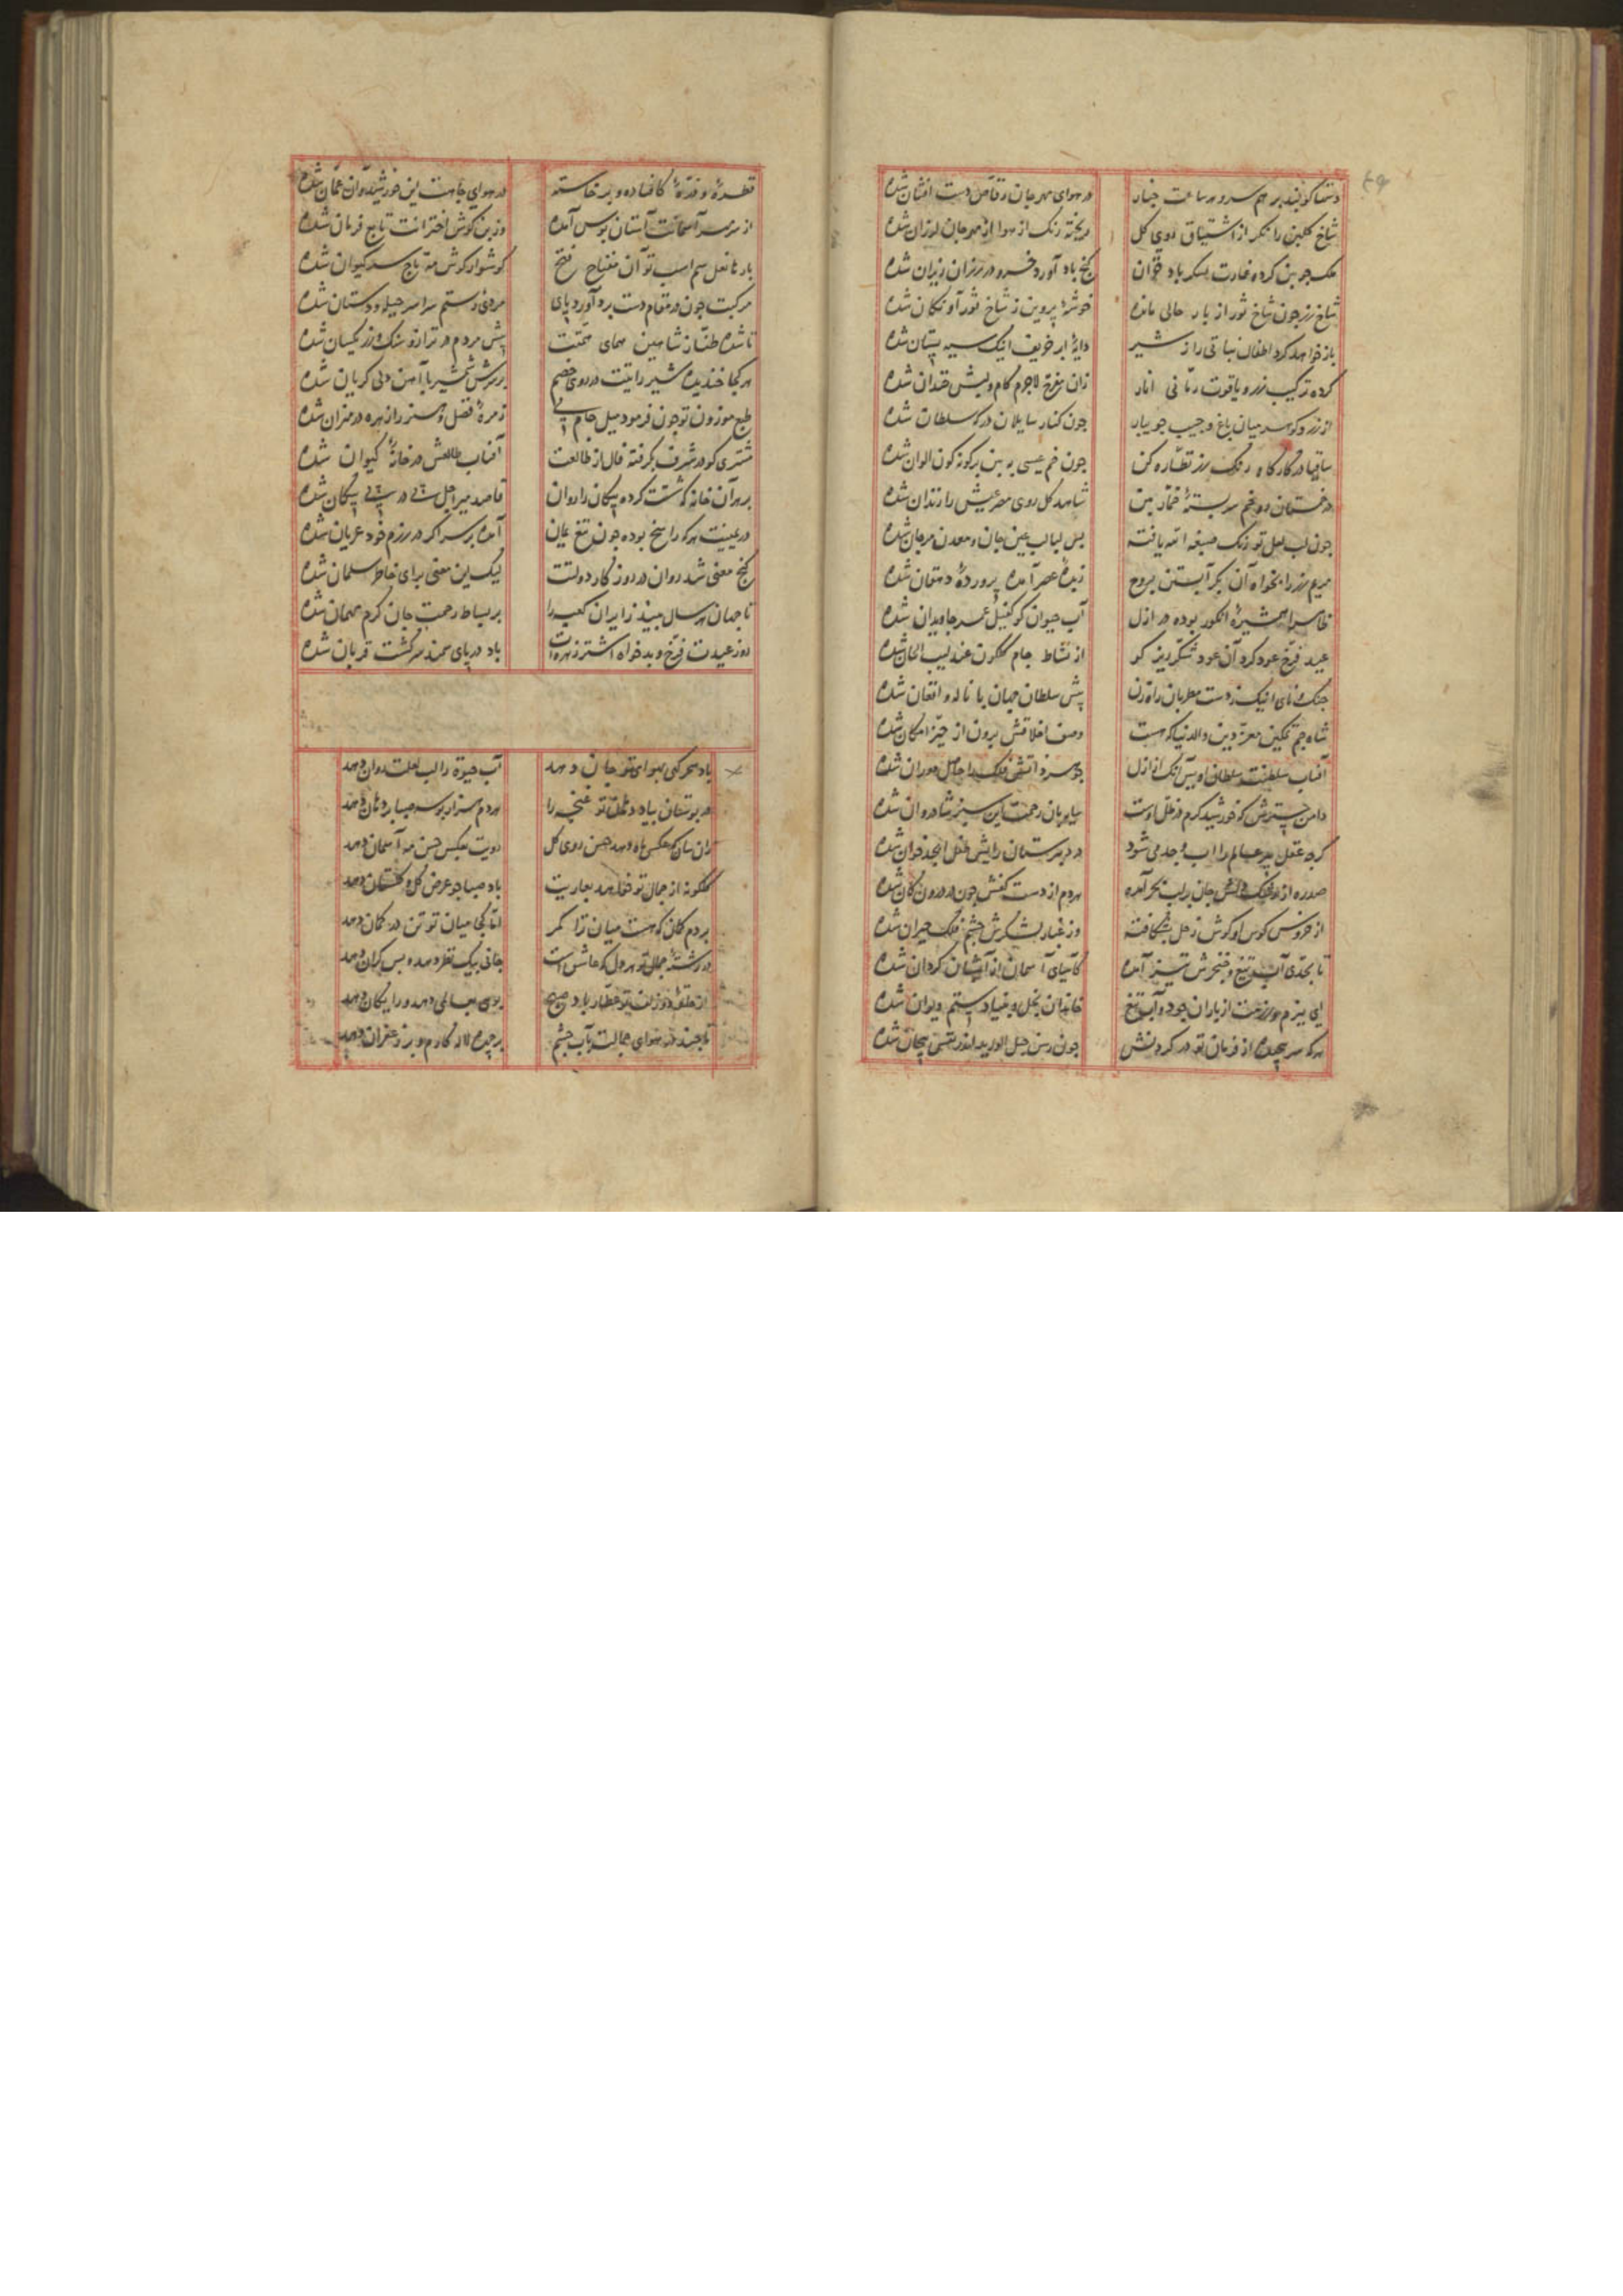 دستها کوبند بر هم سرو هر ساعت چنار در هوای مهرجان رقاص دست افشان شده
شاخ گلبن را نکر از اشتیاق روی کل ریخته رنک از هوا از مهرجان لرزان شده
ملک جوبن کرده غارت لسکر باد خزان کنج باد آورد خسرو در رزان ریزان شده
شاخ رز جون شاخ ثور از بار خالی مانده خوشهٔ پروین ز شاخ ثور آونکان شده
باز خواهد کرد اطفال نباتی را ز شیر دایهٔ ابر خریف اینک سیه پستان شده
کرده ترکیب زر و یاقوت رمانی انار زان مفرح لاجرم کام و لبش خندان شده
از زر و کوهر میان باغ و جیب جویبار جون کنار سایلان در که سلطان شده
ساقیا در کارگاه رنک رز نظاره کن جون خم عیسی به بین برگونه کون الوان شده
در خمستان رو بخم سربستهٔ خمار بین شاهد کل روی معرعیش را زندان شده
جون لب لعل تو رنک صبغة الله یافته بس لبالب عین جان و معدن مرجان شده
مریم رز را بخواه آن بکر آبستن بروح زبدهٔ عصر آمده پروردهٔ دهقان شده
ظاهرا همشیرهٔ انکور بوده در ازل آب حیوان کو کفیل عمر جاویدان شده
عید فرخ عود کرد آن عود شکرریز کو از نشاط جام کلکون عندلیب الحان شده
جنک و نای اینک ز دست مطربان راه زن پیش سلطان جهان با ناله و افغان شده
شاه جم تمکین معز دین والدنیا که هست وصف اخلاقش برون از حیز امکان شده
آفتاب سلطنت سلطان اویس آنک از ازل جوهر ذاتش فلک را حاصل دوران شده
دامن جترش که خورشید کرم در ظل اوست سایه‌بان رحمت این سبز شادروان شده
کرچه عقل پیر عالم را اب و جد می شود در دبیرستان رایش طفل ابجد خوان شده
صدره از جان بر لب بحر آمده هر دم از دست کفش خون در درون کان شده
از خروس کوس او کوش زحل بشکافته وز غبار لشکرش چشم فلک حیران شده
تا بحدی آب تیغ و خنجرش تیز آمده کآسیای آسمان از آبشان کردان شده
ای ببزم و رزمت از باران جود و آب تیغ خاندان بخل و بنیاد ستم ویران شده
هر که سر پیچیده از فرمان تو در کردنش جون رسن حبل الورید اندر قفس پیچان شده
قطرهٔ و ذرهٔ کافتاده و برخاسته در هوای جاهت این خورشید و آن عمان شده
از سر سر آسمانت آستان بوس آمده وز بن کوش اخترانت تابع فرمان شده
بارها نعل سم اسب تو آن مفتاح فتح کوشوار کوش مه تاج سر کیوان شده
مرکبت جون در مقام دست برد آورد پای مردی رستم سراسر حیله و دستان شده
تا شده طناز شاهین همای همتت پیش مردم در ترازو سنک و زر یکسان شده
هر کجا خندیده شیر رایتت در روی خصم بر سرش شمشیر با آهن دلی کریان شده
طبع موزون تو چون فرمود میل جام می زمرهٔ فضل و هنر را زهره در میزان شده
مشتری کو در شرف بکرفته فال از طالعت آفتاب طالعش در خانهٔ کیوان شده
بر هر آن خانه که شستت کرده پیکان را روان قاصد میر اجل پی در پی پیکان شده
در عینیت هر که راسخ بوده جون تیغ یمان آمده بر سر اکر در رزم خود عریان شده
کنج معنی شد روان در روزکار دولتت لیک این معنی برای خاطر سلمان شده
تا جهان هر سال بیند زایران کعبه را بر بساط رحمت جان کرم مهمان شده
روز عیدت فرخ و بدخواه اشتر زهره‌ات باد در پای سمند سرکشت قربان شده
باد سحرکهی بهوای تو جان دهد آب حیوة را لب لعلت روان دهد
در بوستان بیاد دهان تو غنجه را هر دم هزار بوسه صبا بر دهان دهد
زان سان که عکس ماه دهد حسن روی کل رویت بعکس حسن مه آسمان دهد
کلکونه از جمال تو خواهد بعاریت باد صبا جو عرض کل و کلستان دهد
بردم کمان که هست میان ترا کمر اما کجا میان تو تن در کمان دهد
در رشتهٔ جمال تو هر دل که عاشق است جانی بیک نظر دهد و بس کران دهد
از حلقهٔ دو زلف تو عطار باد صبح بویی بعالمی دهد و رایکان دهد
تا جند در هوای جمالت بآب چشم بر چهره لاله کارم و بر زعفران دهد